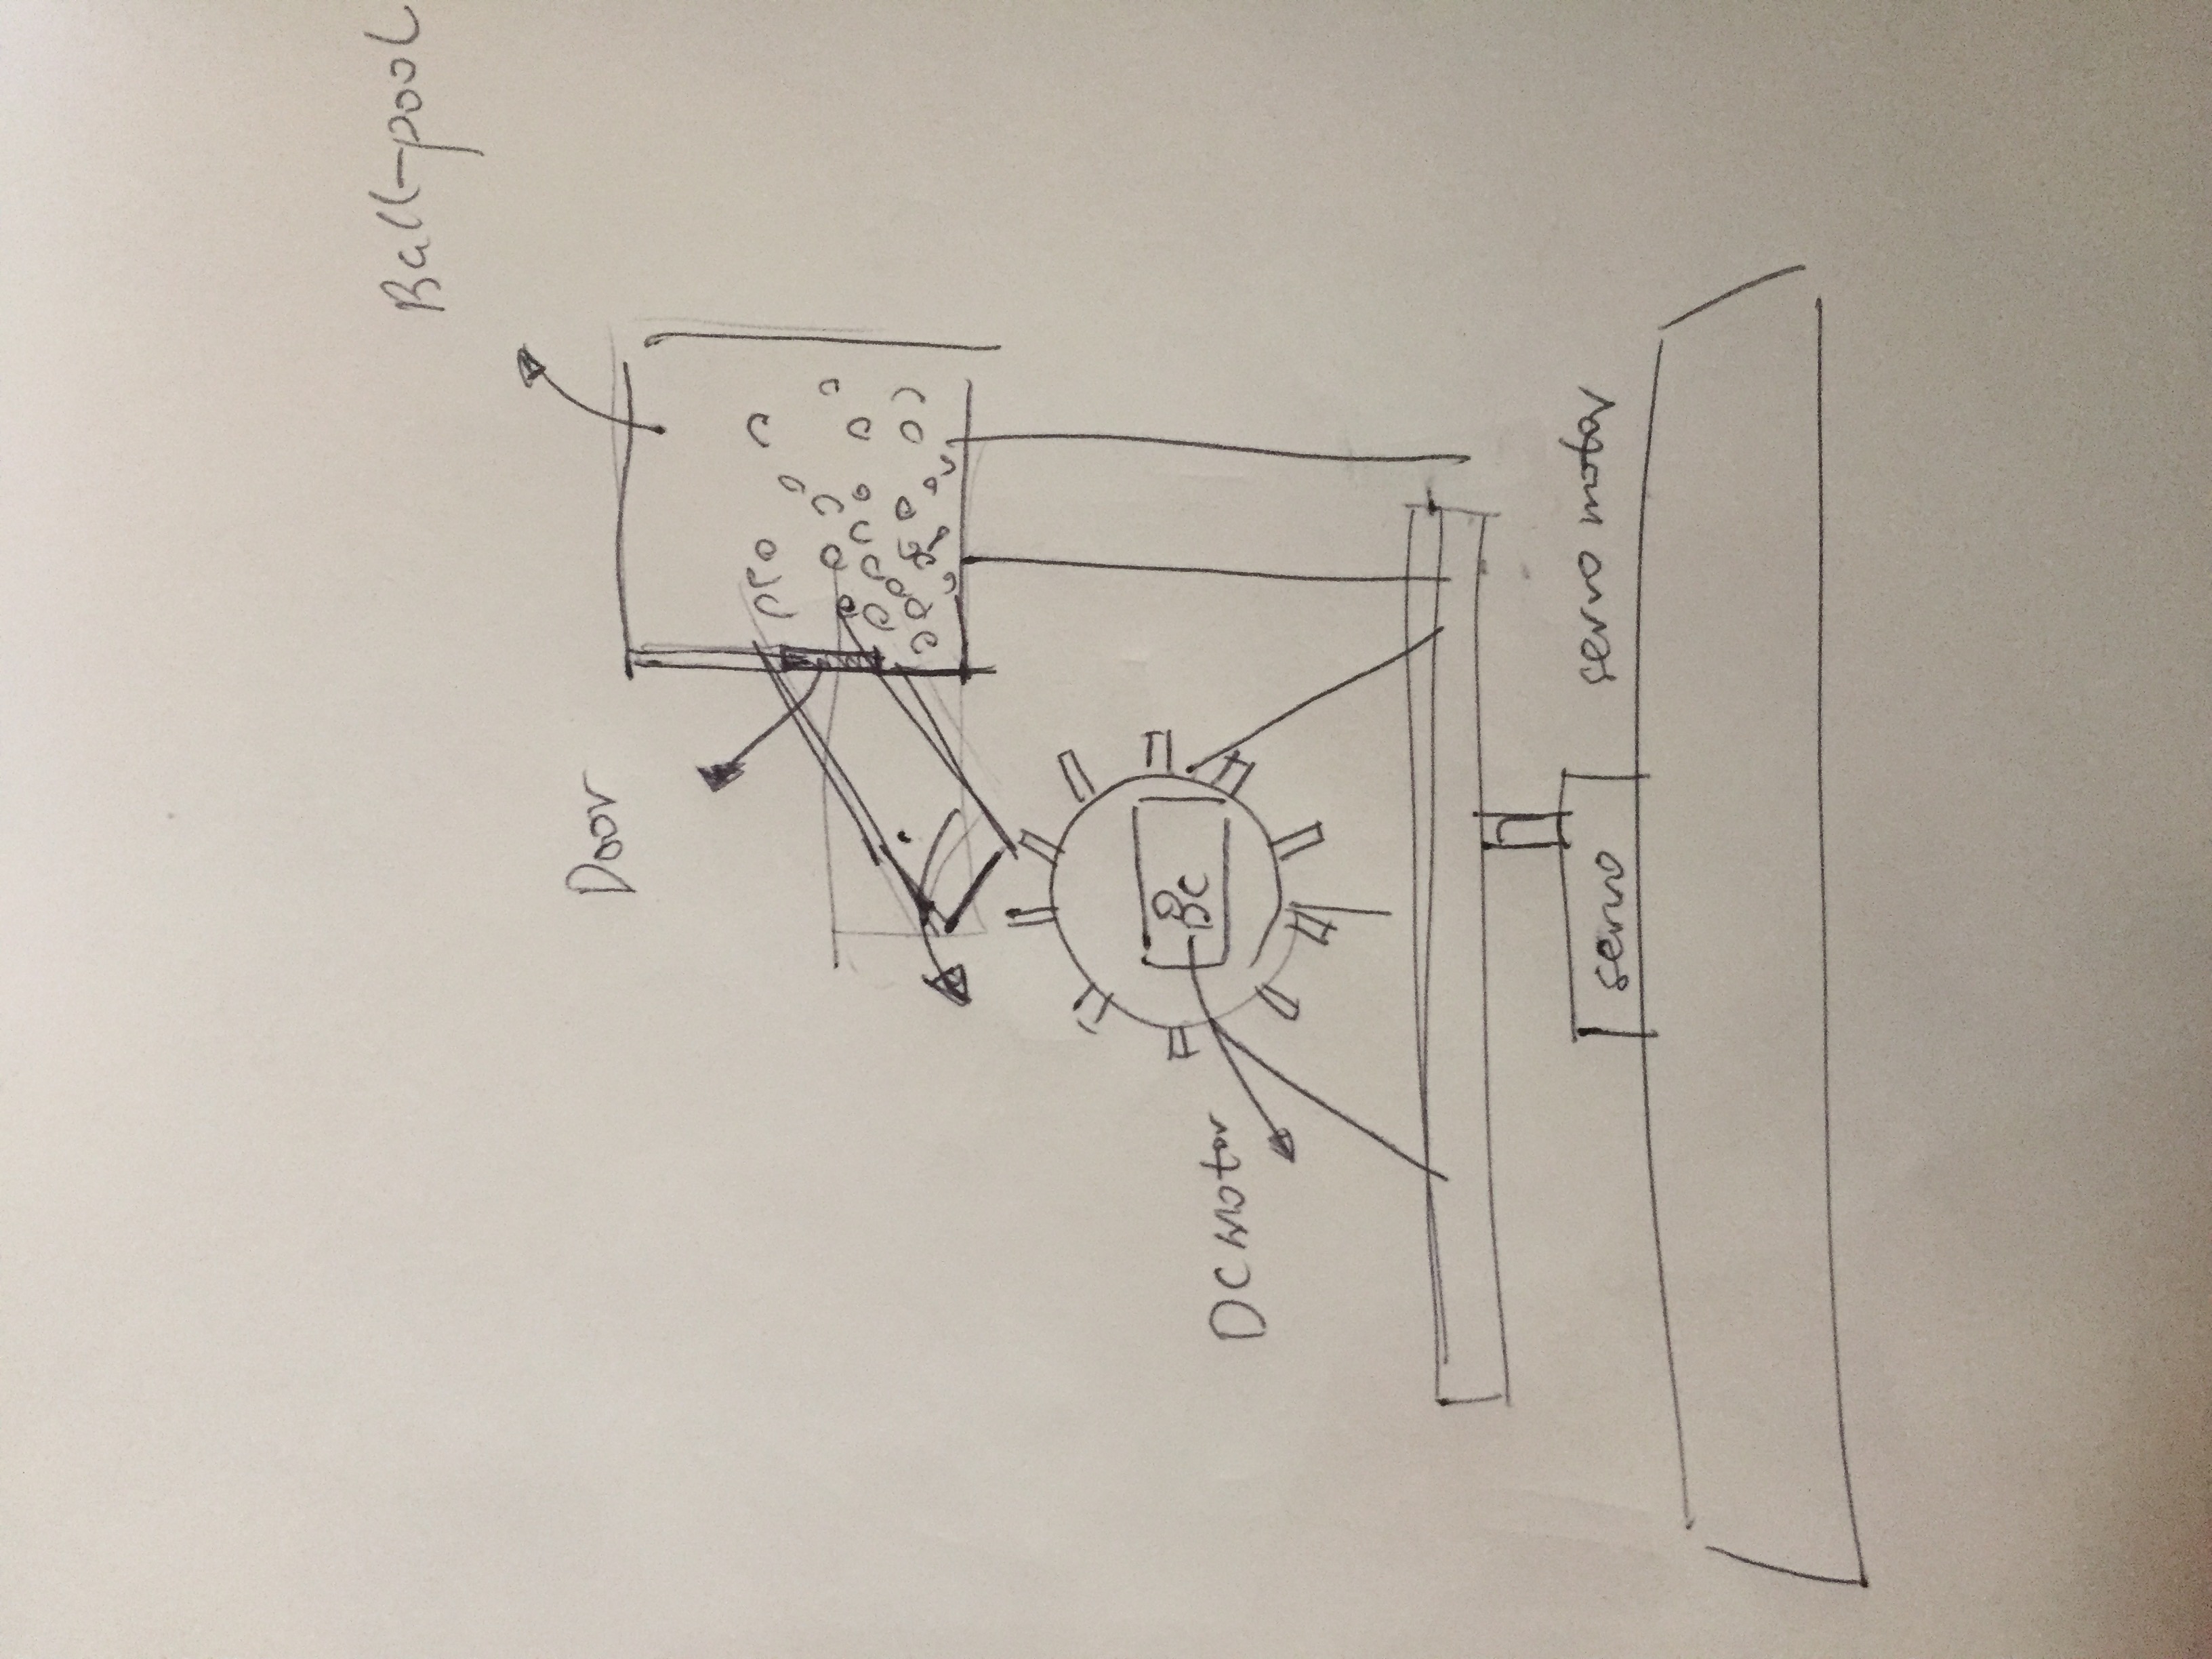 Ball-pool
Door
DC motor
servo
servo motor